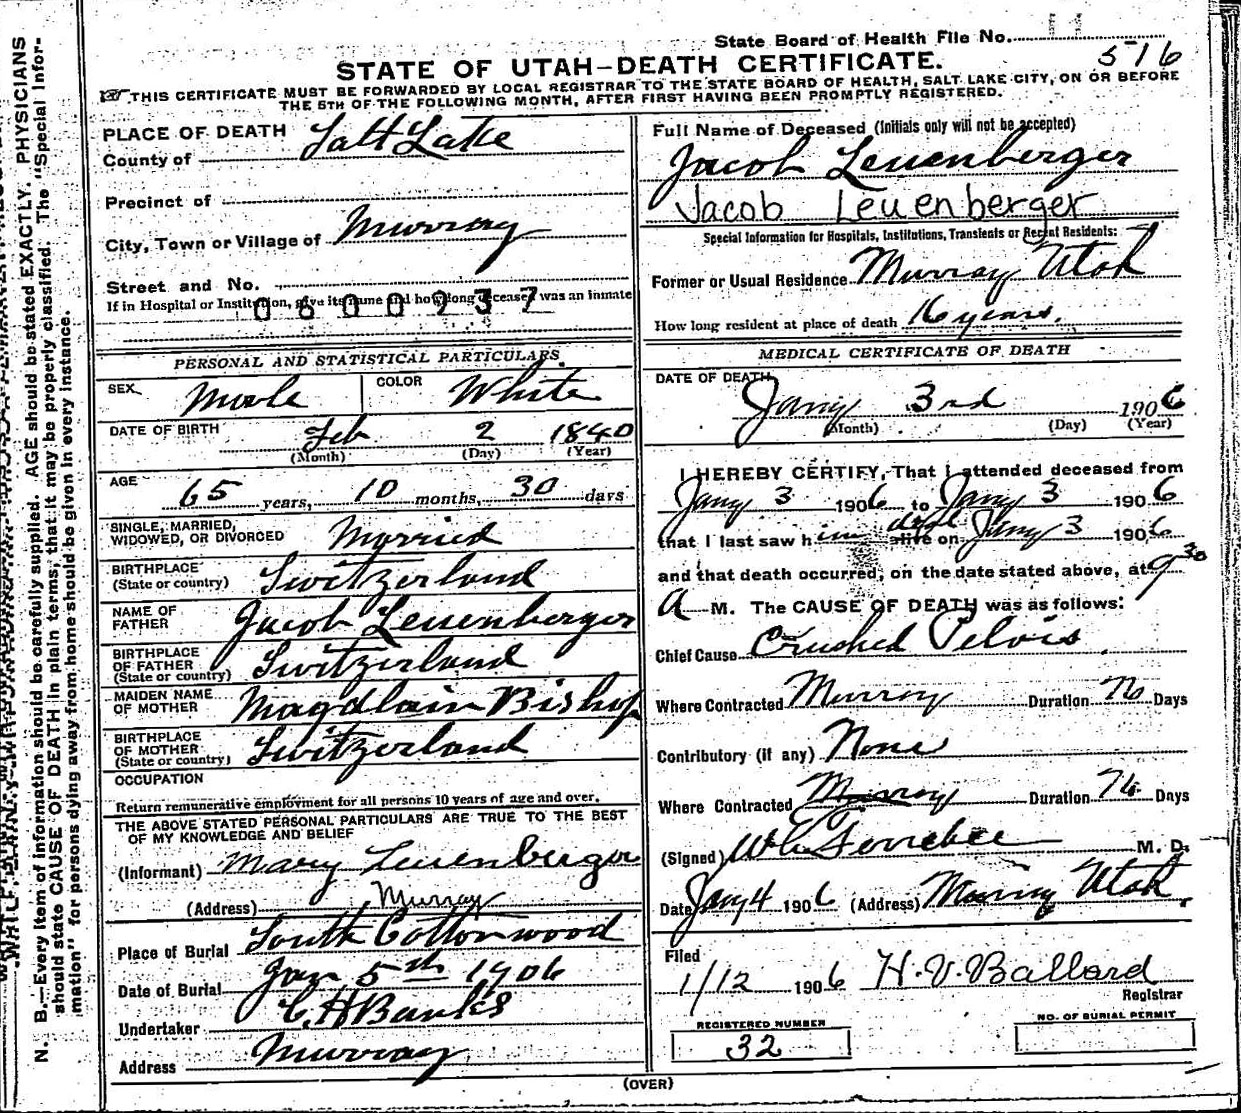 State Board of Health File No. 11
516
STATE OF UTAH-DEATH CERTIFICATE.
THIS CERTIFICATE MUST BE FORWARDED BY LOCAL REGISTRAR TO THE STATE BOARD OF HEALTH, SALT LAKE CITY, ON OR BEFORE
THE 5TH OF THE FOLLOWING MONTH, AFTER FIRST HAVING BEEN PROMPTLY REGISTERED.
PLACE OF DEATH
County of Salt Lake
Precinct of
City, Town or Village of Murray
Street and No.
If in Hospital or Institution, give its name and how long deceased was an inmate
0600937
PERSONAL AND STATISTICAL PARTICULARS.
SEX Male COLOR White
DATE OF BIRTH Feb 2 1840
(Month) (Day) (Year)
AGE 65 years, 10 months, 30 days
SINGLE, MARRIED,
WIDOWED, OR DIVORCED Married
BIRTHPLACE
(State or country) Switzerland
NAME OF
FATHER Jacob Leuenberger
BIRTHPLACE
OF FATHER
(State or country) Switzerland
MAIDEN NAME
OF MOTHER Magdlain Bishop
BIRTHPLACE
OF MOTHER
(State or country) Switzerland
OCCUPATION
Return remunerative employment for all persons 10 years of age and over.
THE ABOVE STATED PERSONAL PARTICULARS ARE TRUE TO THE BEST
OF MY KNOWLEDGE AND BELIEF
(Informant) Mary Leuenberger
(Address) Murray
Place of Burial South Cottonwood
Date of Burial Jan 5th 1906
Undertaker C.H Banks
Address Murray
Full Name of Deceased (Initials only will not be accepted)
Jacob Leuenberger
Jacob Leuenberger
Special Information for Hospitals, Institutions, Transients or Recent Residents:
Former or Usual Residence Murray Utah
How long resident at place of death 16 years.
MEDICAL CERTIFICATE OF DEATH
DATE OF DEATH
Jany 3rd 1906
(Month) (Day) (Year)
I HEREBY CERTIFY, That I attended deceased from
Jany 3 1906 to Jany 3 1906
that I last saw him alive on Jany 3 1906
and that death occurred, on the date stated above, at 9 30
A M. The CAUSE OF DEATH was as follows:
Chief Cause Crushed Pelvis
Where Contracted Murray Duration Days
Contributory (if any) None
Where Contracted Murray Duration Days
(Signed) M. D.
Date Jany 4 1906 (Address) Murray Utah.
Filed
1/12 1906 H. V. Ballard
Registrar
REGISTERED NUMBER
32
NO. OF BURIAL PERMIT
(OVER)
N. B.—Every item of information should be carefully supplied. AGE should be stated EXACTLY. PHYSICIANS
should state CAUSE OF DEATH in plain terms, that it may be properly classified. The "Special Infor-
mation" for persons dying away from home should be given in every instance.